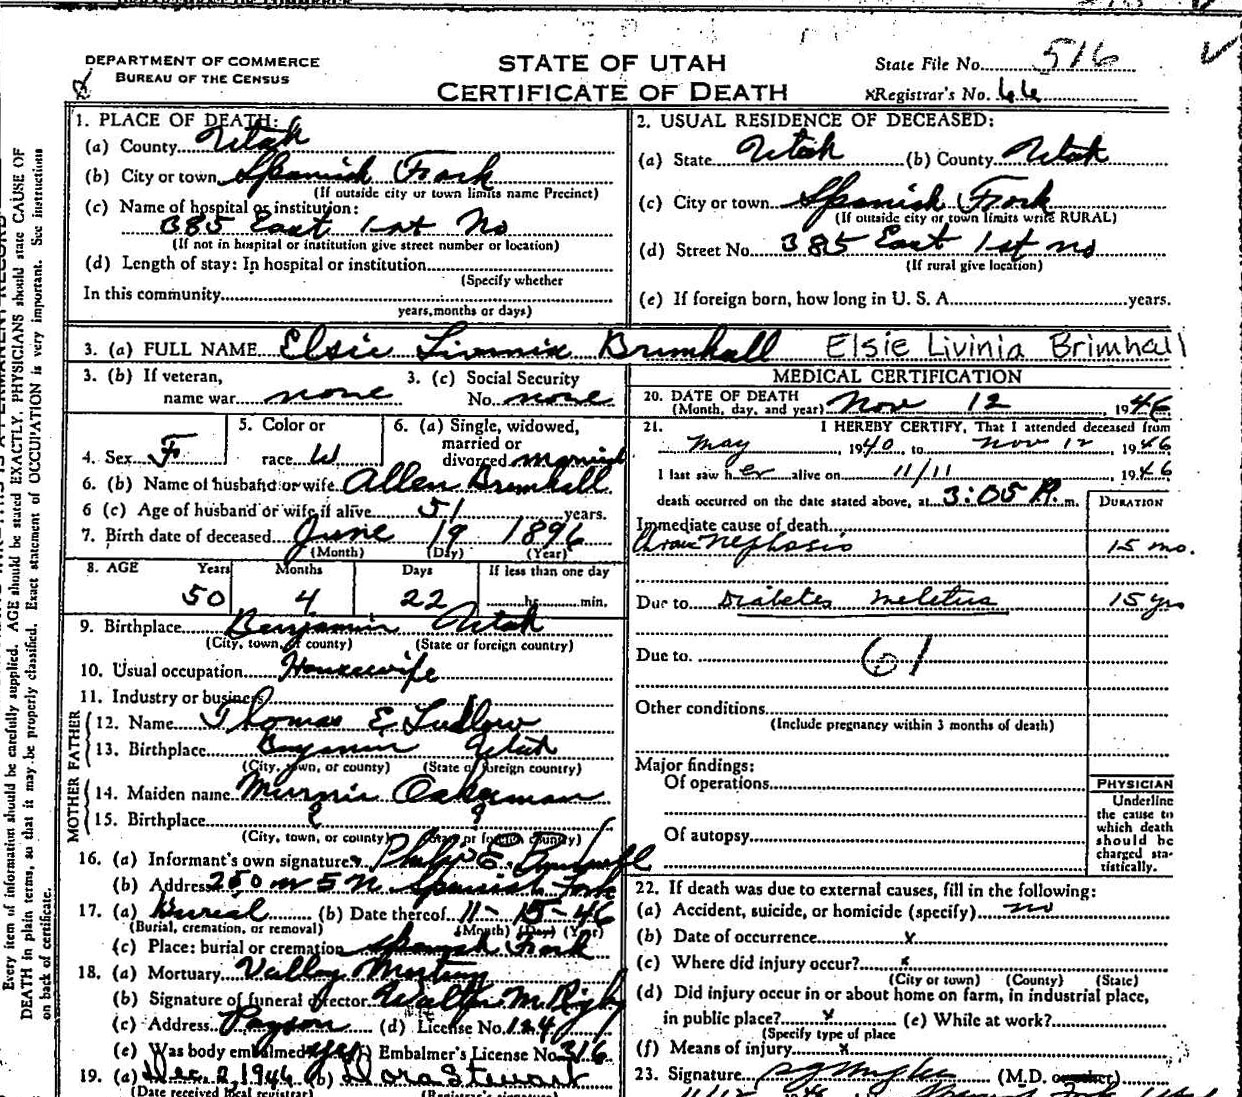 DEPARTMENT OF COMMERCE
BUREAU OF THE CENSUS
STATE OF UTAH
CERTIFICATE OF DEATH
State File No. 516
Registrar's No. 66
Every item of information should be carefully supplied. AGE should be stated EXACTLY. PHYSICIANS should state CAUSE OF
DEATH in plain terms, so that it may be properly classified. Exact statement of OCCUPATION is very important. See instructions
on back of certificate.
1. PLACE OF DEATH:
(a) County Utah
(b) City or town Spanish Fork
(If outside city or town limits name Precinct)
(c) Name of hospital or institution:
385 East 1st No
(If not in hospital or institution give street number or location)
(d) Length of stay: In hospital or institution
(Specify whether
In this community
years, months or days)
2. USUAL RESIDENCE OF DECEASED:
(a) State Utah (b) County Utah
(c) City or town Spanish Fork
(If outside city or town limits write RURAL)
(d) Street No. 385 East 1st no
(If rural give location)
(e) If foreign born, how long in U. S. A. years.
3. (a) FULL NAME Elsie Livinia Brimhall Elsie Livinia Brimhall
3. (b) If veteran,
name war none
3. (c) Social Security
No. none
4. Sex F
5. Color or
race W
6. (a) Single, widowed,
married or
divorced married
6. (b) Name of husband or wife Allen Brimhall
6 (c) Age of husband or wife if alive 51 years.
7. Birth date of deceased June 19 1896
(Month) (Day) (Year)
8. AGE Years Months Days If less than one day
50 4 22 hr. min.
9. Birthplace Benjamin Utah
(City, town, or county) (State or foreign country)
10. Usual occupation Housewife
11. Industry or business
FATHER
12. Name Thomas E Ludlow
13. Birthplace Benjamin Utah
(City, town, or county) (State or foreign country)
MOTHER
14. Maiden name Ockerman
15. Birthplace ? ?
(City, town, or county) (State or foreign country)
16. (a) Informant's own signature Philip E. Brimhall
(b) Address 250 W 5 N Spanish Fork
17. (a) Burial (b) Date thereof 11-15-46
(Burial, cremation, or removal) (Month) (Day) (Year)
(c) Place: burial or cremation Spanish Fork
18. (a) Mortuary Valley Mortuary
(b) Signature of funeral director Walter M. Rigby
(c) Address Payson (d) License No. 124
(e) Was body embalmed yes (f) Embalmer's License No. 316
19. (a) Dec. 2, 1946 (b) Dora Stewart
(Date received local registrar) (Registrar's signature)
MEDICAL CERTIFICATION
20. DATE OF DEATH
(Month, day, and year) Nov 12, 1946
21. I HEREBY CERTIFY, That I attended deceased from
May, 1940, to Nov 12 1946
I last saw her alive on 11/11 1946
death occurred on the date stated above, at 3:05 P. m.
DURATION
Immediate cause of death
Chronic Nephosis 15 mo.
Due to Diabetes meletus 15 yrs
Due to 61
Other conditions
(Include pregnancy within 3 months of death)
Major findings:
Of operations
Of autopsy
PHYSICIAN
Underline
the cause to
which death
should be
charged sta-
tistically.
22. If death was due to external causes, fill in the following:
(a) Accident, suicide, or homicide (specify) no
(b) Date of occurrence x
(c) Where did injury occur? x
(City or town) (County) (State)
(d) Did injury occur in or about home on farm, in industrial place,
in public place? x (e) While at work?
(Specify type of place
(f) Means of injury x
23. Signature (M.D. or other)